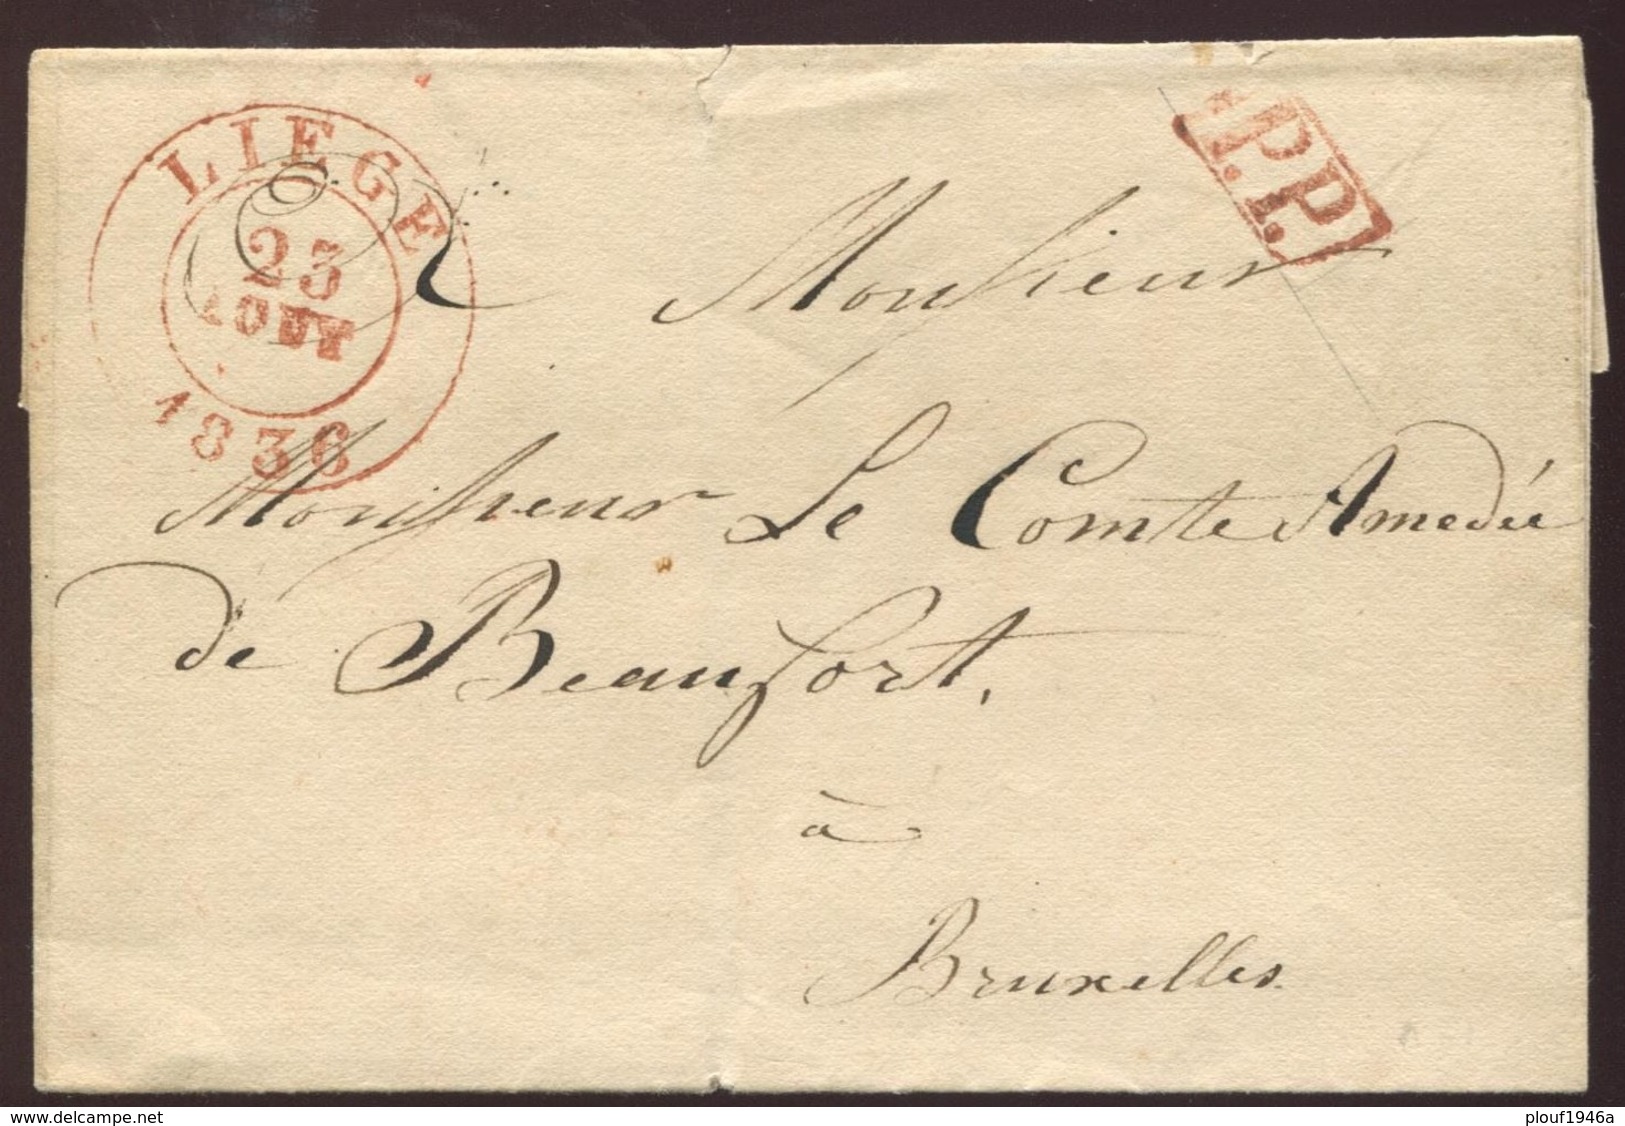 LIEGE
23
AOUT
1836
P.P.P.
A Monsieur
Monsieur Le Comte Amedée
de Beaufort,
à
Bruxelles.
delcampe.net
plouf1946a